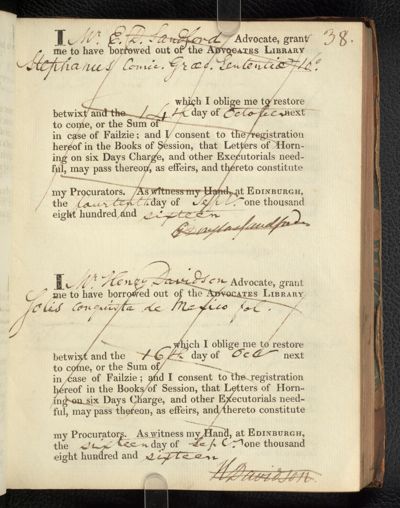 38.
I Mr E. D. Sandford Advocate, grant
me to have borrowed out of the ADVOCATES LIBRARY
Stephanus Comic. Græc. Sententiæ
which I oblige me to restore
betwixt and the 14th day of October next
to come, or the Sum of
in case of Failzie; and I consent to the registration
hereof in the Books of Session, that Letters of Horn-
ing on six Days Charge, and other Executorials need-
ful, may pass thereon, as effeirs, and thereto constitute
my Procurators. As witness my Hand, at EDINBURGH,
the fourteenth day of Septr. one thousand
eight hundred and sixteen
I Mr Henry Davidson Advocate, grant
me to have borrowed out of the ADVOCATES LIBRARY
Solis Conquista de Mexico fol.
which I oblige me to restore
betwixt and the 16th day of Octr next
to come, or the Sum of
in case of Failzie; and I consent to the registration
hereof in the Books of Session, that Letters of Horn-
ing on six Days Charge, and other Executorials need-
ful, may pass thereon, as effeirs, and thereto constitute
my Procurators. As witness my Hand, at EDINBURGH,
the sixteen day of Septr. one thousand
eight hundred and sixteen
H Davidson